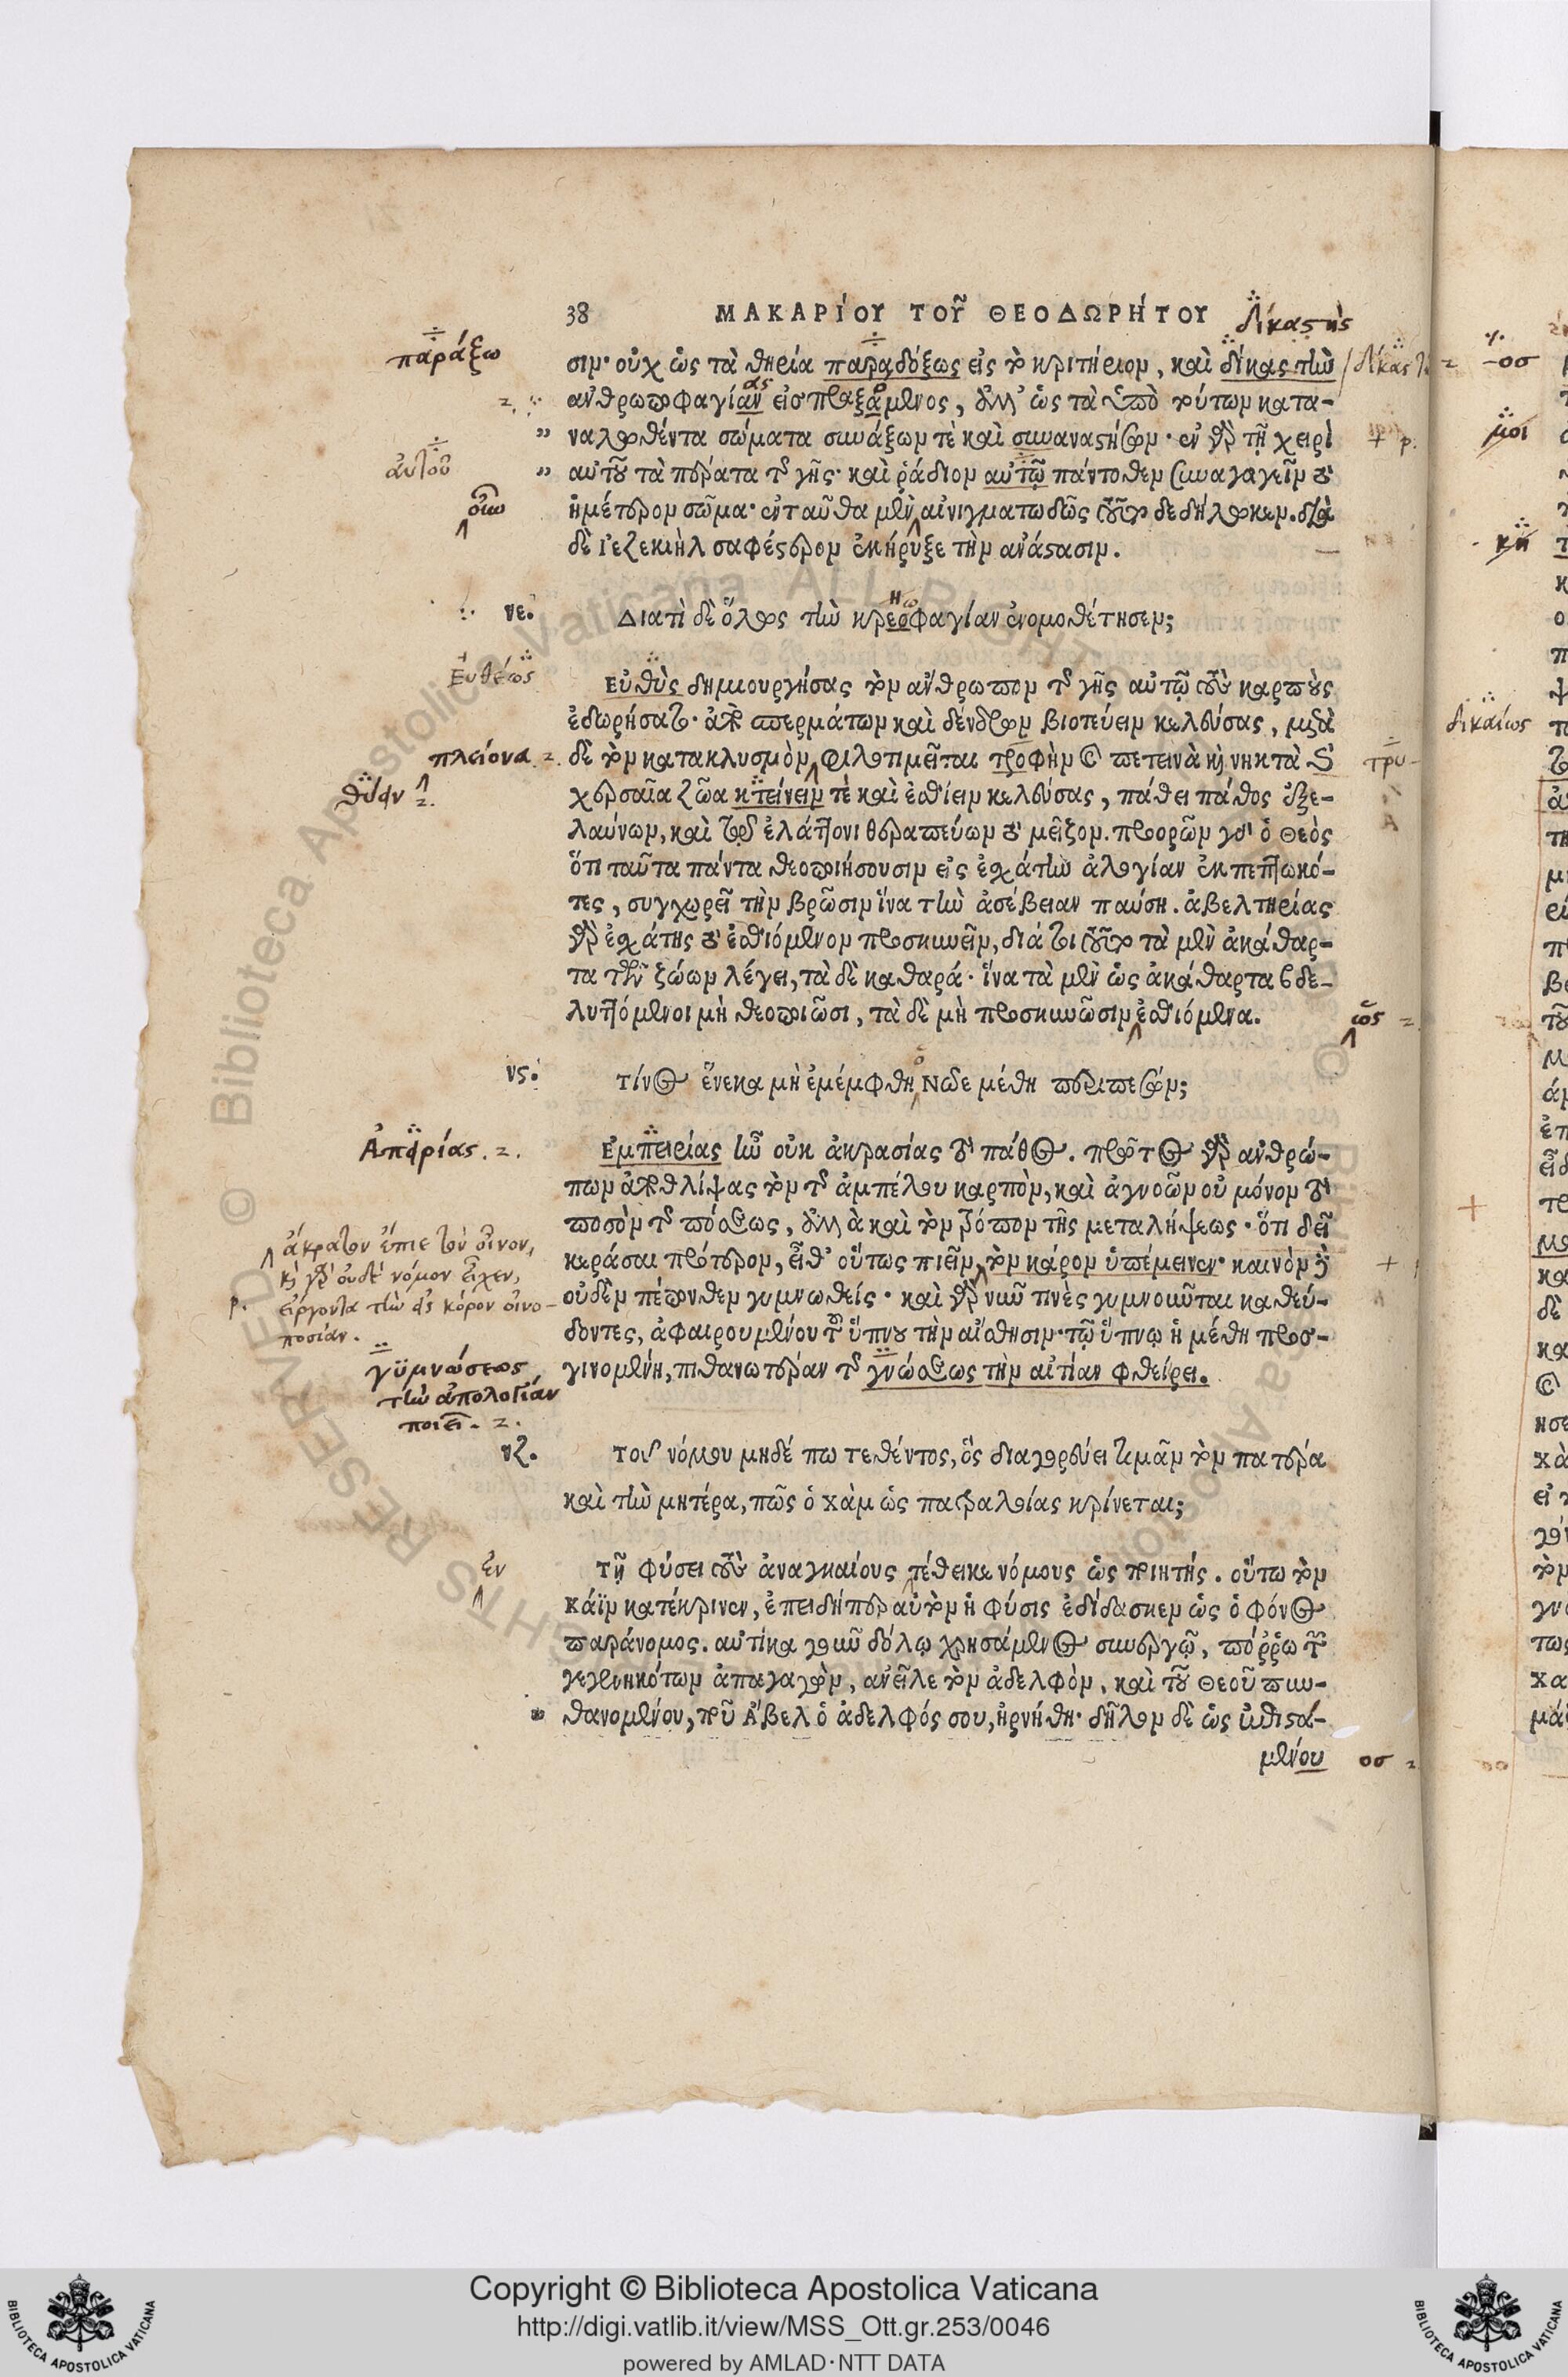 38 ΜΑΚΑΡΙΟΥ ΤΟΥ͂ ΘΕΟΔΩΡΗΤΟΥ
σιν· οὐχ ὡς τὰ θηρία παραδόξως εἰς τὸ κριτήριον, καὶ δίκας τὴν
ἀνθρωποφαγίαν εἰσπραξάμενος, ἀλλ' ὡς τὰ ὑπὸ τούτων κατα-
ναλωθέντα σώματα συνάξων τὲ καὶ συναναστήσων· ἐν γὰρ τῇ χειρὶ
αὐτοῦ τὰ πέρατα τῆς γῆς· καὶ ῥάδιον αὐτῷ πάντοθεν συναγαγεῖν τὸ
ἡμέτερον σῶμα· ἐνταῦθα μὲν αἰνιγματωδῶς τοῦτο δεδήλωκεν. διὰ
δὲ Ἰεζεκιὴλ σαφέστερον ἐκήρυξε τὴν ἀνάστασιν.
νε. Διατὶ δὲ ὅλως τὴν κρεοφαγίαν ἐνομοθέτησεν;
Εὐθὺς δημιουργήσας τὸν ἄνθρωπον τῆς γῆς αὐτῷ τοὺς καρποὺς
ἐδωρήσατο· ἀπὸ σπερμάτων καὶ δένδρων βιοτεύειν κελεύσας, μετὰ
δὲ τὸν κατακλυσμὸν φιλοτιμεῖται τροφὴν καὶ πετεινὰ καὶ νηκτὰ καὶ
χερσαῖα ζῶα κτείνειν τὲ καὶ ἐσθίειν κελεύσας, πάθει πάθος ἐξε-
λαύνων, καὶ τῷ ἐλάττονι θεραπεύων τὸ μεῖζον. προορῶν γὰρ ὁ Θεὸς
ὅτι ταῦτα πάντα θεοποιήσουσιν εἰς ἐσχάτην ἀλογίαν ἐκπεπτωκό-
τες, συγχωρεῖ τὴν βρῶσιν ἵνα τὴν ἀσέβειαν παύσῃ. ἀβελτηρίας
γὰρ ἐσχάτης τὸ ἐσθιόμενον προσκυνεῖν, διά τοι τοῦτο τὰ μὲν ἀκάθαρ-
τα τῶν ζώων λέγει, τὰ δὲ καθαρά· ἵνα τὰ μὲν ὡς ἀκάθαρτα βδε-
λυττόμενοι μὴ θεοποιῶσι, τὰ δὲ μὴ προσκυνῶσιν ἐσθιόμενα.
νς. Τίνος ἕνεκα μὴ ἐμέμφθη Νῶε μέθῃ περιπεσών;
Ἐμπειρίας ἦν οὐκ ἀκρασίας τὸ πάθος. πρῶτος γὰρ ἀνθρώ-
πων ἀποθλίψας τὸν τῆς ἀμπέλου καρπὸν, καὶ ἀγνοῶν οὐ μόνον τὸ
ποσὸν τῆς πόσεως, ἀλλὰ καὶ τὸν τρόπον τῆς μεταλήψεως· ὅτι δεῖ
κεράσαι πρότερον, εἶθ' οὕτως πιεῖν, τὸν κάρον ὑπέμεινεν· καινὸν δὲ
οὐδὲν πέπονθεν γυμνωθείς· καὶ γὰρ νῦν τινὲς γυμνοῦνται καθεύ-
δοντες, ἀφαιρουμένου τοῦ ὕπνου τὴν αἴσθησιν· τῷ ὕπνῳ ἡ μέθη προσ-
γινομένη, πιθανωτέραν τῆς γνώσεως τὴν αἰτίαν φθείρει.
νζ. Τοῦ νόμου μηδέ πω τεθέντος, ὃς διαγορεύει τιμᾶν τὸν πατέρα
καὶ τὴν μητέρα, πῶς ὁ Χὰμ ὡς πατραλοίας κρίνεται;
Τῇ φύσει τοὺς ἀναγκαίους τέθεικε νόμους ὡς ποιητής. οὕτω τὸν
Κάϊν κατέκρινεν, ἐπειδήπερ αὐτὸν ἡ φύσις ἐδίδασκεν ὡς ὁ φόνος
παράνομος. αὐτίκα γοῦν δόλῳ χρησάμενος συνεργῷ, πόῤῥω τῶν
γεγεννηκότων ἀπαγαγὼν, ἀνεῖλε τὸν ἀδελφὸν, καὶ τοῦ Θεοῦ πυν-
θανομένου, ποῦ Ἄβελ ὁ ἀδελφός σου, ἠρνήθη· δῆλον δὲ ὡς ἐπιστα-
μένου
Δίκαστὴς
παράξω
αὐτοῦ
οὖν
Εὐθέως
πλείονα
θύειν
ως
Ἀπειρίας
ἄκρατον ἔπιε τὸν οἶνον,
καὶ γὰρ οὐδὲ νόμον εἶχεν,
εἴργοντα τὴν εἰς κόρον οἰνο-
ποσίαν.
γυμνώσεως
τὴν ἀπολογίαν
ποιεῖ.
ἐν
οσ
τρυ-
-οσ
μοι
κῆ
δικαίως
© Biblioteca Apostolica Vaticana ALL RIGHTS RESERVED
Copyright © Biblioteca Apostolica Vaticana
http://digi.vatlib.it/view/MSS_Ott.gr.253/0046
powered by AMLAD·NTT DATA
BIBLIOTECA APOSTOLICA VATICANA
BIBLIOTECA APOSTOLICA VATICANA